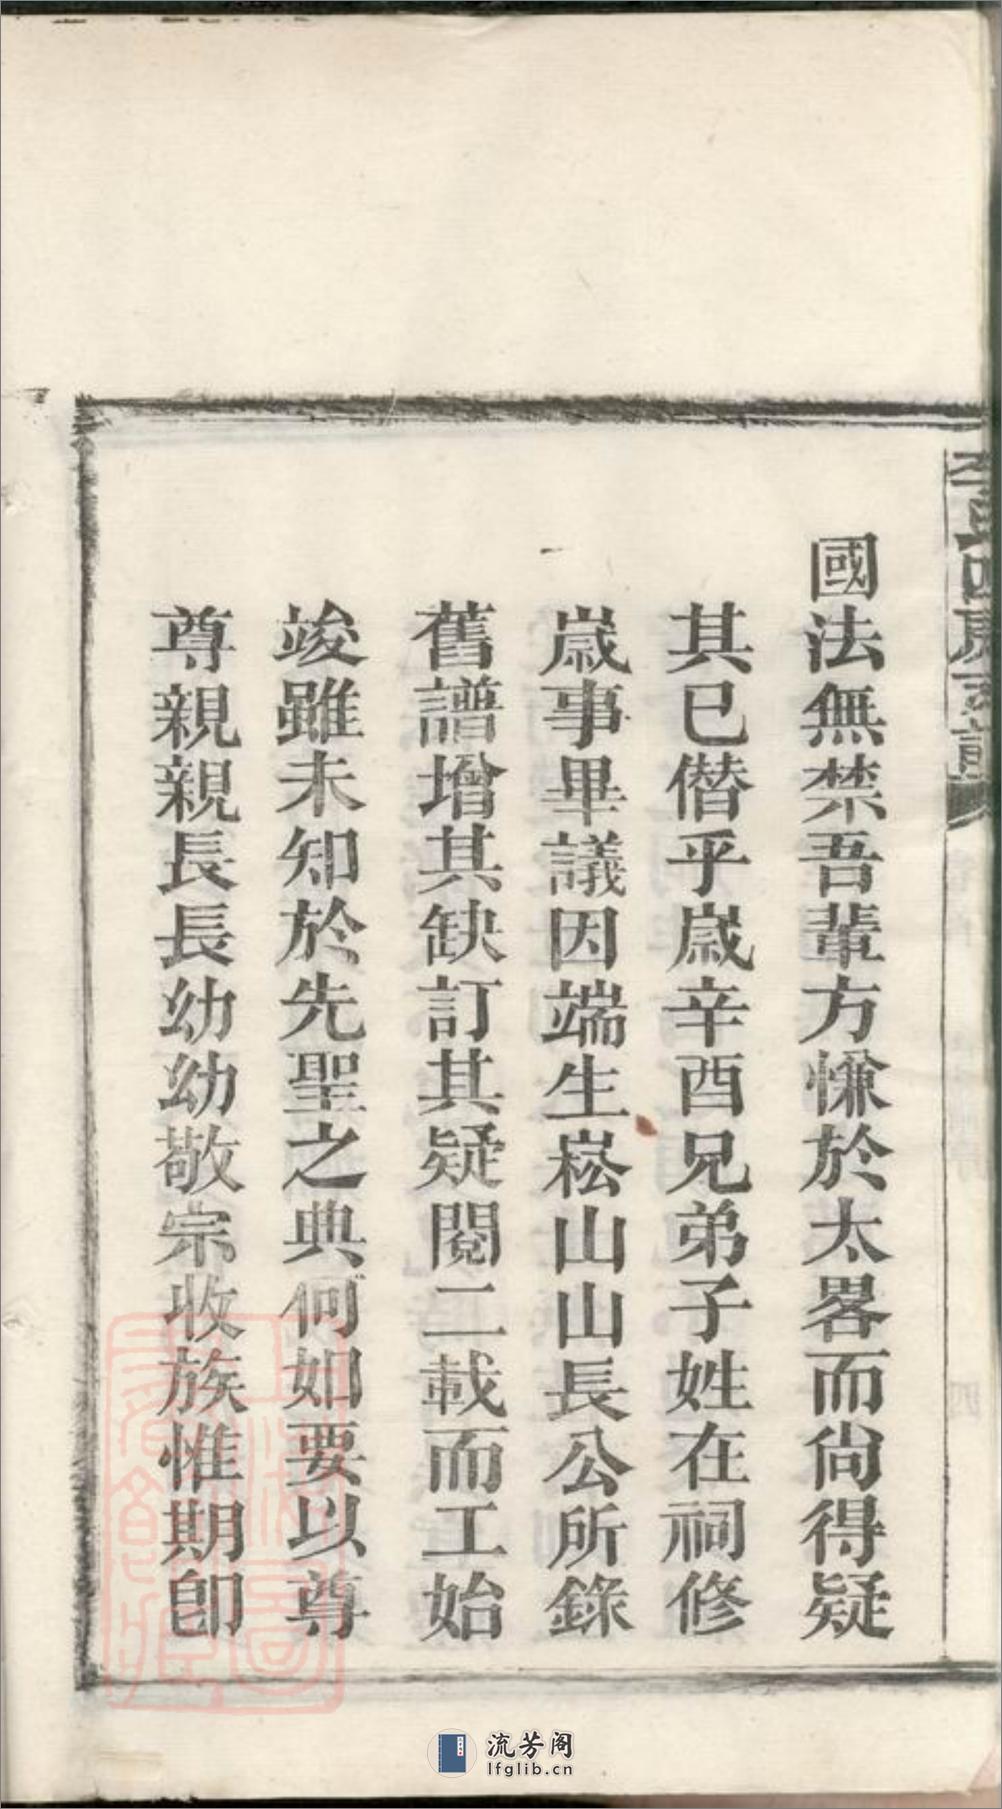 國法無禁吾輩方慊於太畧而尙得疑
其已僭乎歲辛酉兄弟子姓在祠修
歲事畢議因端生崧山山長公所錄
舊譜增其缺訂其疑閱二載而工始
竣雖未知於先聖之典何如要以尊
尊親親長長幼幼敬宗收族惟期卽
流芳阁
lfglib.cn